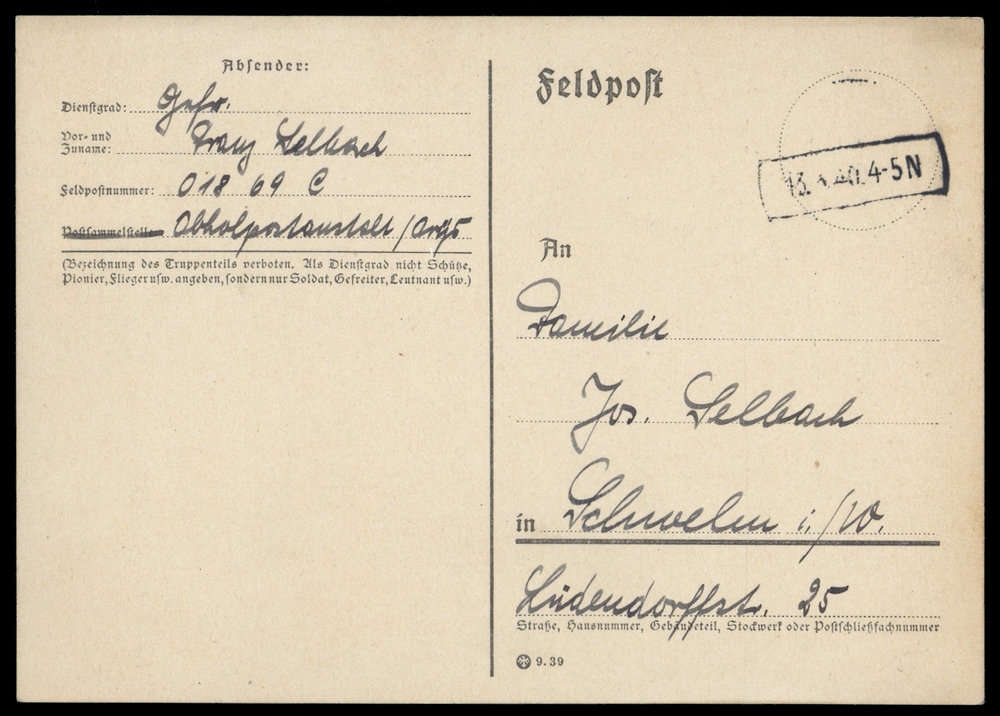 Absender:
Dienstgrad: Gefr.
Vor- und
Zuname: Franz Selbach
Feldpostnummer: 018 69 C
Postsammelstelle Abholpostanstalt /
(Bezeichnung des Truppenteils verboten. Als Dienstgrad nicht Schütze,
Pionier, Flieger usw. angeben, sondern nur Soldat, Gefreiter, Leutnant usw.)
Feldpost
13. 40. 4-5 N
An
Familie
Jos. Selbach
in Schwelm i./W.
Lüdendorffstr. 25
Straße, Hausnummer, Gebäudeteil, Stockwerk oder Postschließfachnummer
9. 39